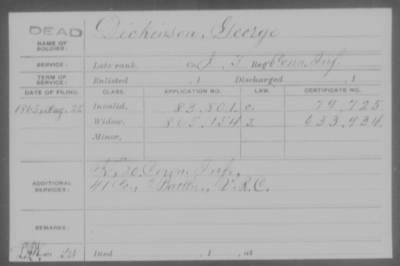 DEAD
Dickinson, George
NAME OF SOLDIER:
SERVICE: Late rank, Co. I, Reg't Penn. Inf.
TERM OF SERVICE: Enlisted , 1 Discharged , 1
DATE OF FILING. CLASS. APPLICATION NO. LAW. CERTIFICATE NO.
1865, Aug. 22 Invalid, 83,801 79,725
Widow, 805,154 633,934
Minor,
ADDITIONAL SERVICES:
30 Penn Inf.
41 Co., 2 Batt., V.R.C.
REMARKS:
Died , 1 , at